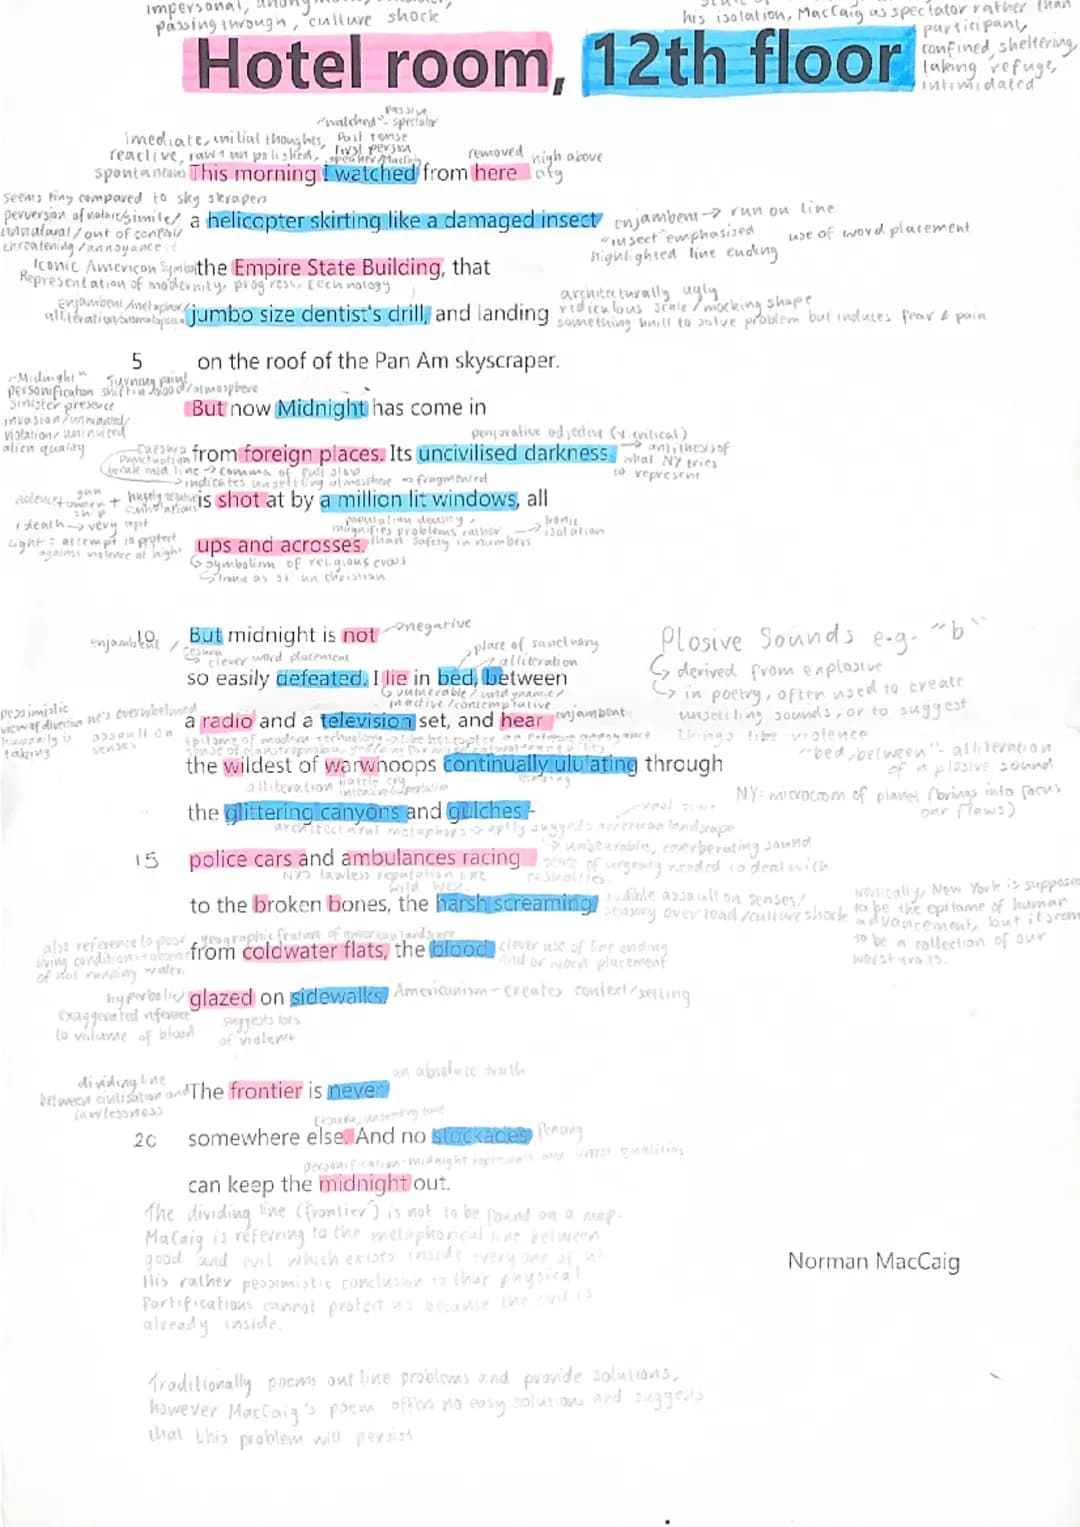 impersonal,
passing through, culture shock
his isolation, MacCaig as spectator rather than
participant,
confined, sheltering,
taking refuge,
intimidated
Hotel room, 12th floor
passive
"watched" - spectator
imediate, initial thoughts, Past tense
reactive, raw + not polished, first person
spontaneous speaker/MacCaig
removed high above
city
This morning I watched from here
seems tiny compared to sky skraper
perversion of nature/simile/
unnatural/out of control/
threatening/annoyance
a helicopter skirting like a damaged insect
enjambent → run on line
"insect" emphasised use of word placement
highlighted line ending
Iconic American Symbol
Representation of modernity, progress, technology
the Empire State Building, that
enjambent/metaphor/
alliteration/onomatopoeia
jumbo size dentist's drill, and landing
architecturally ugly
ridiculous scale/mocking shape
something built to solve problem but induces fear & pain
5 on the roof of the Pan Am skyscraper.
"Midnight" Turning point
personification shift in mood/atmosphere
sinister presence
invasion/unwanted/
violation/uninvited
alien quality
But now Midnight has come in
perjorative adjective (v. critical)
from foreign places. Its uncivilised darkness
→ antithesis of
what NY tries
to represent
Caesura
Punctuation
break mid line → comma of full stop
→ indicates unsettling atmosphere → fragmented
violence, gun owner ship + hugely negative connotations
(death → very apt
Light = attempt to protect
against violence at night
is shot at by a million lit windows, all
population density,
magnifies problems rather → Ironic isolation
than safety in numbers
ups and acrosses.
symbolism of religious cross
Ironic as so un christian
10 But midnight is not
negative
enjambent
cesura
clever word placement
place of sanctuary
alliteration
so easily defeated. I lie in bed, between
vulnerable/undynamic/
inactive/contemplative
Plosive Sounds e.g. "b"
derived from explosive
in poetry, often used to create
unsettling sounds, or to suggest
things like violence
"bed, between" - alliteration
of a plosive sound
pessimistic
view of direction
humanity is
taking
he's overwhelmed
assault on
senses
a radio and a television set, and hear
enjambent
the wildest of warwhoops continually ululating through
alliteration battle cry
NY = microcosm of planet (brings into focus
our flaws)
the glittering canyons and gulches -
architectural metaphors → aptly suggests American landscape
unbearable, reverberating sound
15 police cars and ambulances racing
sense of urgency needed to deal with
casualties.
NYs lawless reputation like
wild west.
to the broken bones, the harsh screaming
audible assault on senses/
sensory overload/culture shock
ironically, New York is supposed
to be the epitome of human
advancement, but it seems
to be a collection of our
worst traits.
also reference to poor
living conditions - absence
of hot running water.
geographic feature of american landscape
from coldwater flats, the blood
clever use of line ending
and or word placement
hyperbolic
exaggerated reference
to volume of blood
glazed on sidewalks.
Americanism - creates context/setting
suggests lots
of violence
an absolute truth
dividing line
between civilisation and
lawlessness
The frontier is never
20 somewhere else. And no stockades
fencing
personification - midnight represents our worst qualities
can keep the midnight out.
The dividing line (frontier") is not to be found on a map.
MaCaig is referring to the metaphorical line between
good and evil which exists inside every one of us
His rather pessimistic conclusion is that physical
fortifications cannot protect us because the evil is
already inside.
Norman MacCaig
Traditionally poems out line problems and provide solutions,
however MacCaig's poem offers no easy solutions and suggests
that this problem will persist